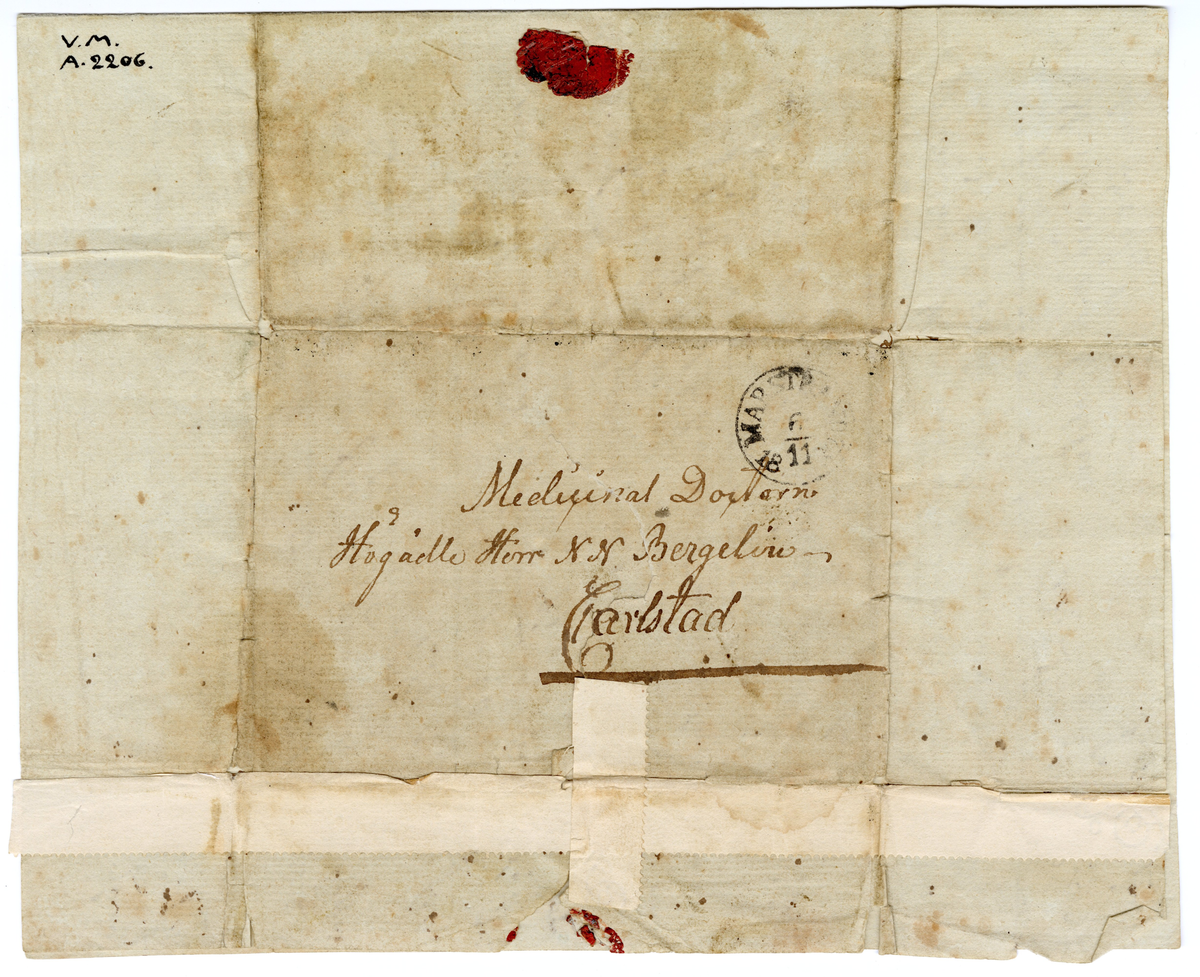 V. M.
A. 2206.
6
1811
Medicinal Doctorn
Högädle Herr N N Bergelin
Carlstad